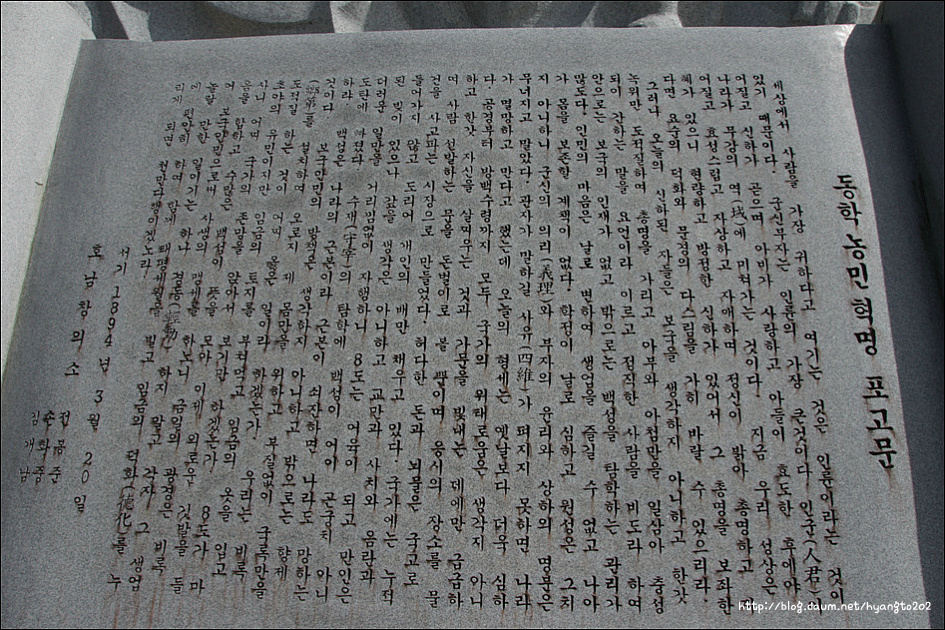 동학농민혁명 포고문
세상에서 사람을 가장 귀하다고 여기는 것은 인륜이라는 것이
있기 때문이다. 군신부자는 인륜의 가장 큰것이다. 인군(人君)이
어질고 신하가 곧으며 아비가 사랑하고 아들이 효도한 후에야
나라가 무강의 역(域)에 미쳐가는 것이다. 지금 우리 성상은
어질고 효성스럽고 자상하고 자애하며 정신이 밝아 총명하고 지
혜가 있으니 현량하고 방정한 신하가 있어서 그 총명을 보좌한
다면 요순의 덕화와 문경의 다스림을 가히 바랄 수 있으리라.
그러나 오늘의 신하된 자들은 보국을 생각하지 아니하고 한갓
녹위만 도적질하여 총명을 가리고 아부와 아첨만을 일삼아 충성
되이 간하는 말을 요언이라 이르고 정직한 사람을 비도라 하여
안으로는 보국의 인재가 없고 밖으로는 백성을 탐학하는 관리가
많도다. 인민의 마음은 날로 변하여 생업을 즐길 수 없고 나아
가 몸을 보존할 계책이 없다. 학정이 날로 심하고 원성은 그치
지 아니하니 군신의 의리(義理)와 부자의 윤리와 상하의 명분은
무너지고 말았다. 관자가 말하길 사유(四維)가 펴지지 못하면 나라
가 멸망하고 만다고 했는데 오늘의 형세는 옛날보다 더욱 심하
다. 공경부터 방백수령까지 모두 국가의 위태로움은 생각지 아니
하고 한갓 자신을 살찌우는 것과 가문을 빛내는 데에만 급급하
며 사람 선발하는 문을 돈벌이로 볼 뿐이며 응시의 장소를 물
건을 사고파는 시장으로 만들었다. 허다한 돈과 뇌물은 국고로
들어가지 않고 도리어 개인의 배만 채우고 있다. 국가에는 누적
된 빚이 있으나 갚을 생각은 아니하고 교만과 사치와 음란과
더러운 일만을 거리낌없이 자행하니 8도는 어육이 되고 만인은
도탄에 빠졌다. 수재(守宰)의 탐학에 백성이 어찌 곤궁치 아니
하랴. 백성은 나라의 근본이라 근본이 쇠잔하면 나라도 망하는
것이다. 보국안민의 방책은 생각하지 아니하고 밖으로는 향제
(鄕第)를 설치하여 오로지 제 몸만을 위하고 부질없이 국록만을
도적질 하는 것이 어찌 옳은 일이라 하겠는가. 우리는 비록
초야의 유민이지만 임금의 토지를 부쳐먹고 임금의 옷을 입고
사니 어찌 국가의 존망을 앉아서 보기만 하겠는가. 8도가 마
음을 합하고 수많은 백성이 뜻을 모아 이제 의로운 깃발을 들
어 보국안민으로써 사생의 맹세를 하노니 금일의 광경은 비록
놀랄 만한 일이기는 하나 경동(輕動)하지 말고 각자 그 생업
에 편안히 하여 함께 태평세월을 빌고 임금의 덕화(德化)를 누
리게 되면 천만다행이겠노라.
서기 1894년 3월 20일
호남창의소
전봉준
손화중
김개남
http://blog.daum.net/hyangto202